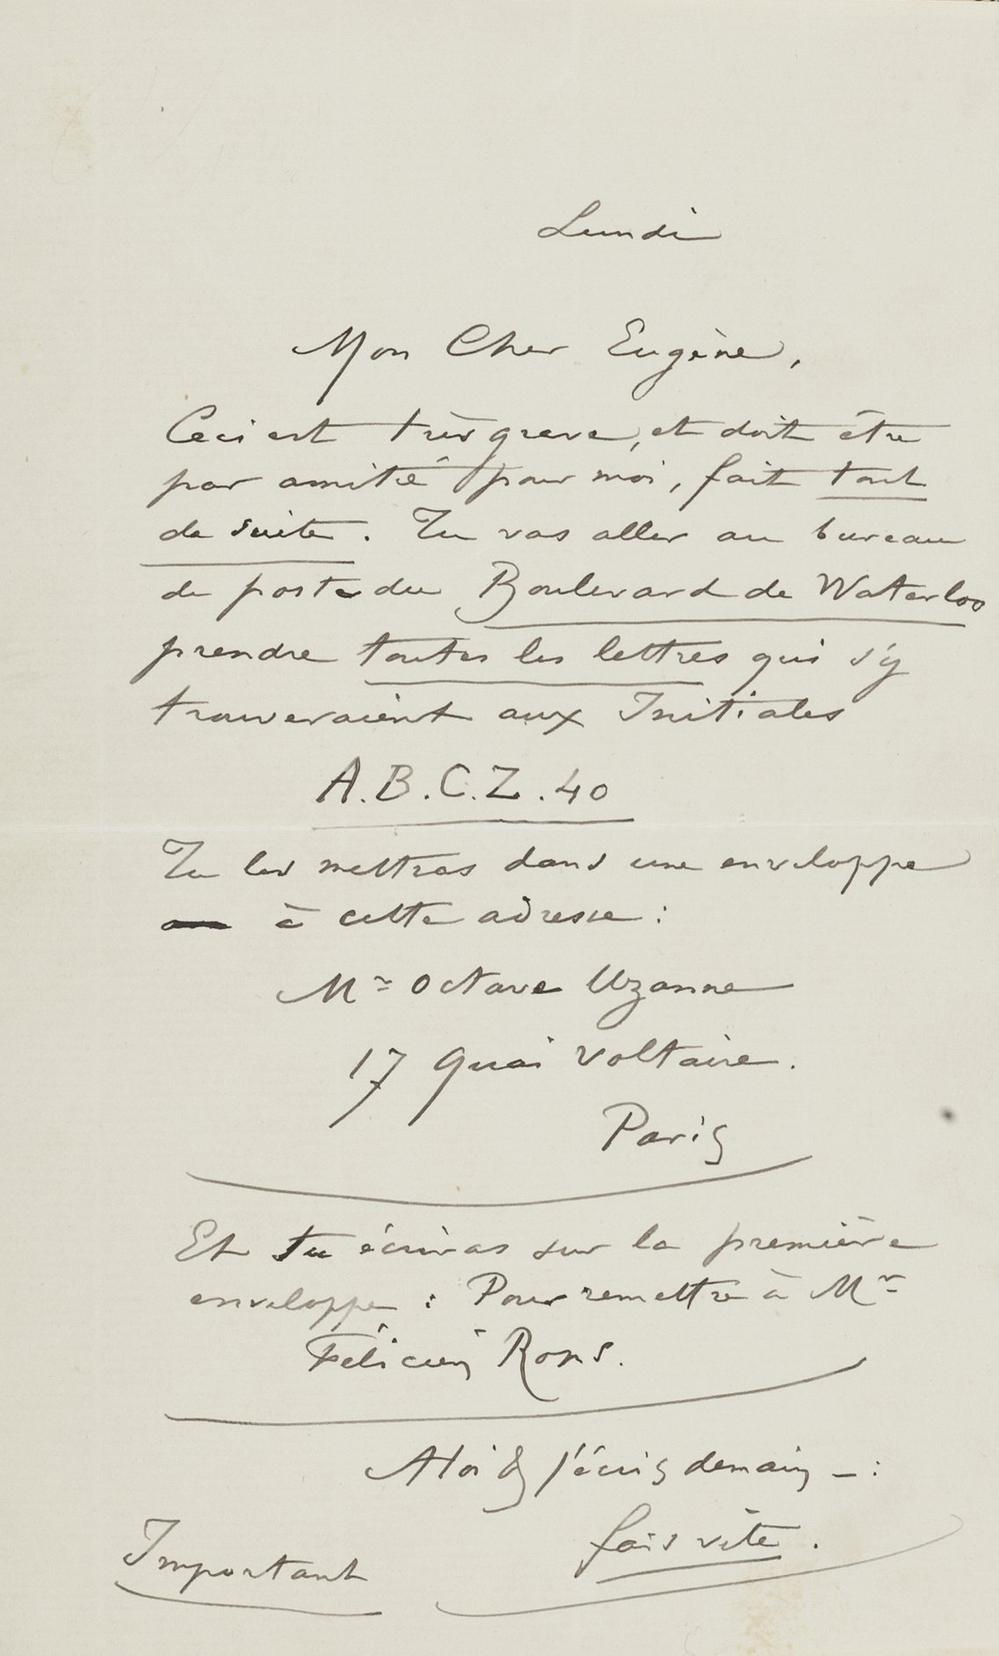 Lundi
Mon Cher Eugène,
Ceci est très grave, et doit être
par amitié pour moi, fait tout
de suite. Tu vas aller au bureau
de poste du Boulevard de Waterloo
prendre toutes les lettres qui s'y
trouveraient aux Initiales
A.B.C.Z.40
Tu les mettras dans une enveloppe
à cette adresse :
Mr Octave Uzanne
17 Quai Voltaire.
Paris
Et tu écriras sur la première
enveloppe : Pour remettre à Mr
Félicien Rops.
A toi & j'écris demain – :
fais vite.
Important